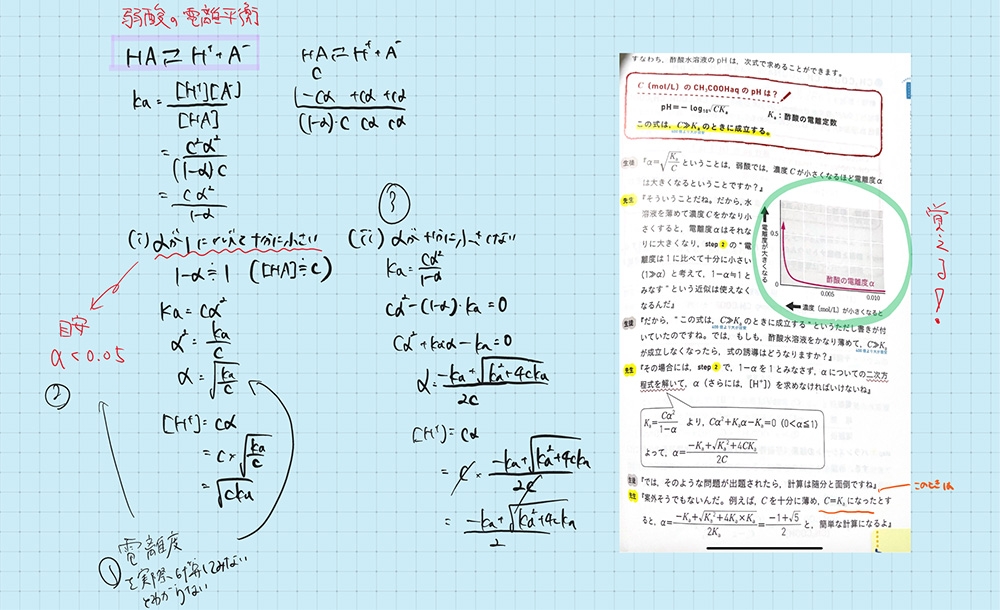 弱酸の電離平衡
HA ⇄ H⁺ + A⁻
Ka = [H⁺][A⁻] / [HA]
= c²α² / (1-α)c
= cα² / 1-α
(i) αが1に比べて十分に小さい
1-α ≒ 1 ([HA] ≒ c)
Ka = cα²
α² = Ka / c
α = √(Ka / c)
[H⁺] = cα
= c × √(Ka / c)
= √(cKa)
目安
α < 0.05
②
① 電離度
を実際に計算してみない
とわからない
HA ⇄ H⁺ + A⁻
c
-cα +cα +cα
(1-α)・c cα cα
③
(ii) αが十分に小さくない
Ka = cα² / 1-α
cα² - (1-α)・Ka = 0
cα² + Kaα - Ka = 0
α = -Ka + √(Ka² + 4cKa) / 2c
[H⁺] = cα
= c × -Ka + √(Ka² + 4cKa) / 2c
= -Ka + √(Ka² + 4cKa) / 2
すなわち，酢酸水溶液の pH は，次式で求めることができます。
C (mol/L) の CH₃COOHaq の pH は？
pH = − log₁₀√CKₐ Kₐ：酢酸の電離定数
この式は，C≫Kₐ のときに成立する。
生徒『α=√(Kₐ/C) ということは，弱酸では，濃度 C が小さくなるほど電離度 α
は大きくなるということですか？』
先生『そういうことだね。だから，水
溶液を薄めて濃度 C をかなり小
さくすると，電離度 α はそれな
りに大きくなり，step 2 の“電
離度は1に比べて十分に小さい
(1≫α) と考えて，1−α≒1 と
みなす”という近似は使えなく
なるんだ』
電離度が大きくなる
0.5
0
酢酸の電離度 α
0.005 0.010
濃度 (mol/L) が小さくなると
覚える！
生徒『だから，“この式は，C≫Kₐ のときに成立する”というただし書きが付
いていたのですね。では，もしも，酢酸水溶液をかなり薄めて，C≫Kₐ
が成立しなくなったら，式の誘導はどうなりますか？』
先生『その場合には，step 2 で，1−α を1とみなさず，α についての二次方
程式を解いて，α（さらには，[H⁺]）を求めなければいけないね』
Kₐ = Cα² / 1−α より，Cα²+Kₐα−Kₐ=0 (0<α≦1)
よって，α = −Kₐ+√(Kₐ²+4CKₐ) / 2C
生徒『では，そのような問題が出題されたら，計算は随分と面倒ですね』
このときは
先生『案外そうでもないんだ。例えば，C を十分に薄め，C=Kₐ になったとす
ると，α = −Kₐ+√(Kₐ²+4Kₐ×Kₐ) / 2Kₐ = −1+√5 / 2 と，簡単な計算になるよ』